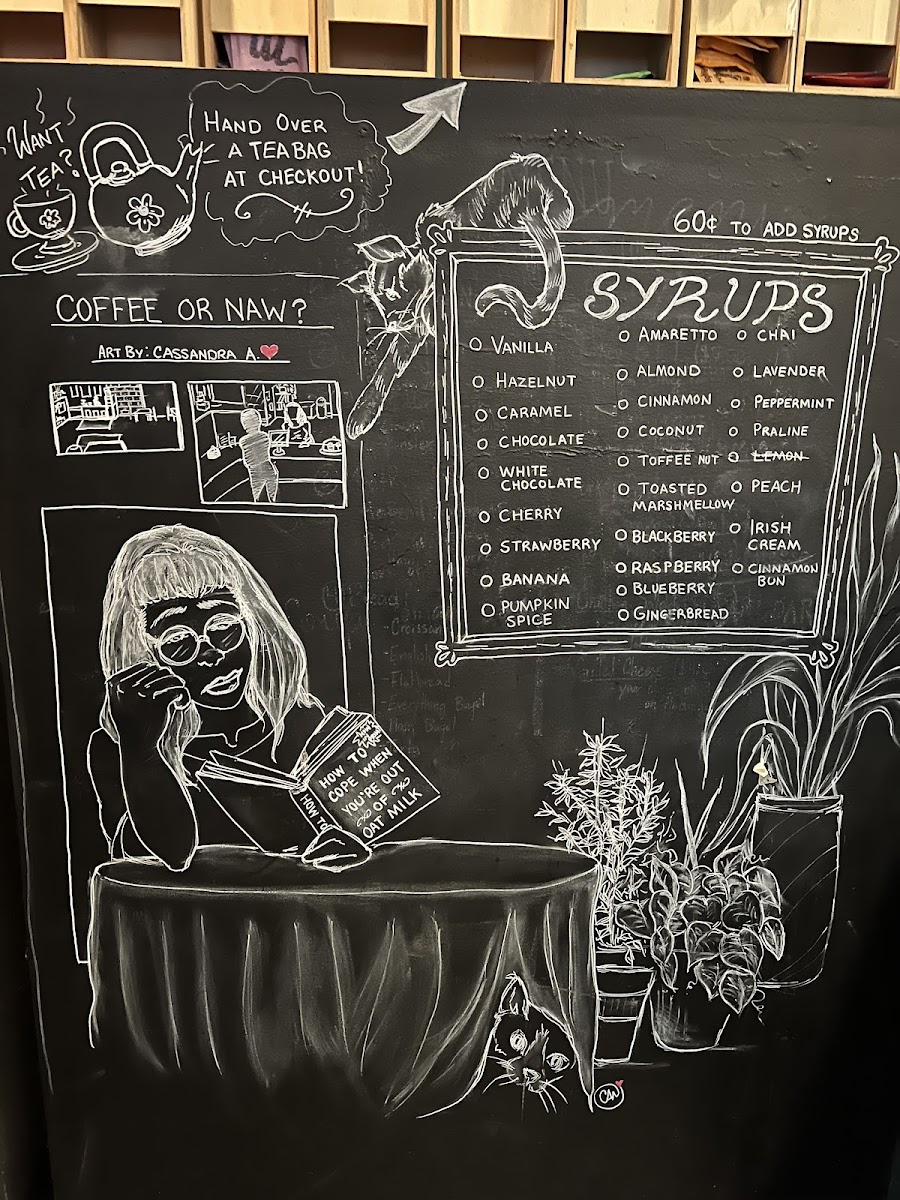 WANT
TEA?
HAND OVER
A TEA BAG
AT CHECKOUT!
60¢ TO ADD SYRUPS
COFFEE OR NAW?
ART BY: CASSANDRA A.
SYRUPS
VANILLA
HAZELNUT
CARAMEL
CHOCOLATE
WHITE
CHOCOLATE
CHERRY
STRAWBERRY
BANANA
PUMPKIN
SPICE
AMARETTO
ALMOND
CINNAMON
COCONUT
TOFFEE NUT
TOASTED
MARSHMELLOW
BLACKBERRY
RASPBERRY
BLUEBERRY
GINGERBREAD
CHAI
LAVENDER
PEPPERMINT
PRALINE
LEMON
PEACH
IRISH
CREAM
CINNAMON
BUN
HOW TO
COPE WHEN
YOU'RE OUT
OF
OAT MILK
HOW TO
Everything Bagel
CAW